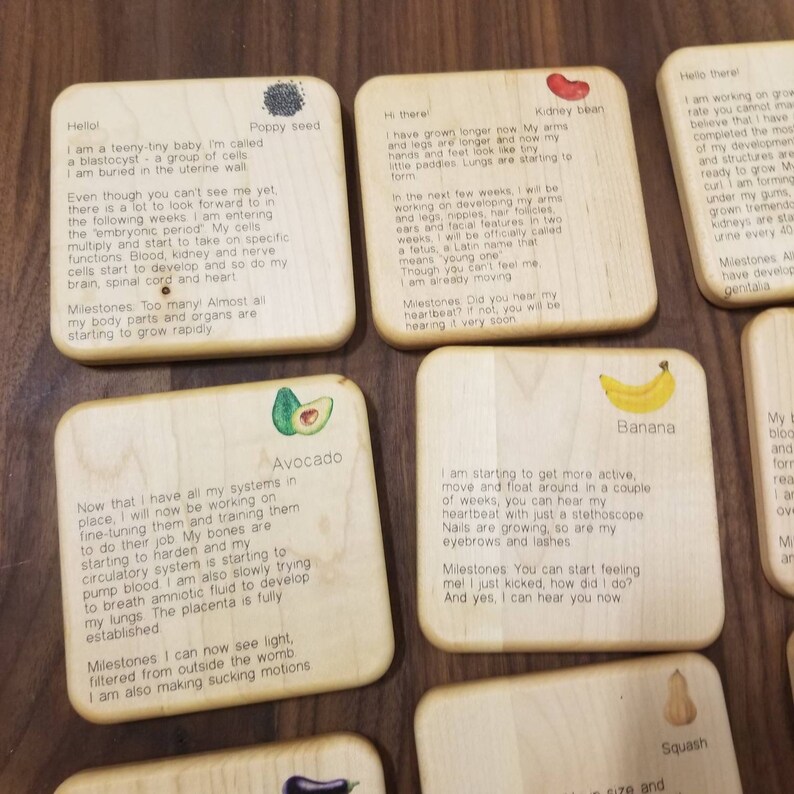 Hello!
Poppy seed
I am a teeny-tiny baby. I'm called
a blastocyst - a group of cells.
I am buried in the uterine wall.
Even though you can't see me yet,
there is a lot to look forward to in
the following weeks. I am entering
the "embryonic period". My cells
multiply and start to take on specific
functions. Blood, kidney and nerve
cells start to develop and so do my
brain, spinal cord and heart.
Milestones: Too many! Almost all
my body parts and organs are
starting to grow rapidly.
Hi there!
Kidney bean
I have grown longer now. My arms
and legs are longer and now my
hands and feet look like tiny
little paddles. Lungs are starting to
form.
In the next few weeks, I will be
working on developing my arms
and legs, nipples, hair follicles,
ears and facial features. In two
weeks, I will be officially called
a fetus, a Latin name that
means "young one".
Though you can't feel me,
I am already moving.
Milestones: Did you hear my
heartbeat? If not, you will be
hearing it very soon.
Hello there!
I am working on grow
rate you cannot ima
believe that I have
completed the most
of my development
and structures are
ready to grow. My
curl. I am forming
under my gums,
grown tremendo
kidneys are sta
urine every 40
Milestones: All
have develop
genitalia
Avocado
Now that I have all my systems in
place, I will now be working on
fine-tuning them and training them
to do their job. My bones are
starting to harden and my
circulatory system is starting to
pump blood. I am also slowly trying
to breath amniotic fluid to develop
my lungs. The placenta is fully
established.
Milestones: I can now see light,
filtered from outside the womb.
I am also making sucking motions.
Banana
I am starting to get more active,
move and float around. In a couple
of weeks, you can hear my
heartbeat with just a stethoscope.
Nails are growing, so are my
eyebrows and lashes.
Milestones: You can start feeling
me! I just kicked, how did I do?
And yes, I can hear you now.
My b
bloo
and
for
rea
I ar
ove
Mil
an
Squash
in size and